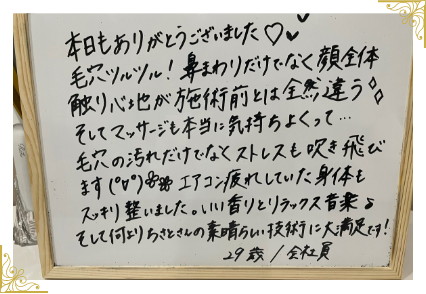 本日もありがとうございました♡♥
毛穴ツルツル！鼻まわりだけでなく顔全体
触り心地が施術前とは全然違う✧
そしてマッサージも本当に気持ちよくって…
毛穴の汚れだけでなくストレスも吹き飛び
ます(°∀°)ꕤꕤ エアコン疲れしていた身体も
スッキリ整いました。いい香りとリラックス音楽♪
そして何よりちさとさんの素晴らしい技術に大満足です！
29歳/会社員